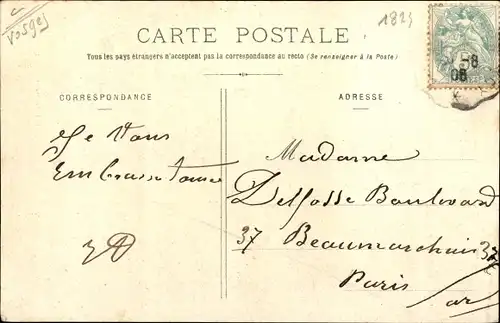 Vosges
1823
CARTE POSTALE
Tous les pays étrangers n'acceptent pas la correspondance au recto (Se renseigner à la Poste)
CORRESPONDANCE
ADRESSE
-8
08
Je Vous
Embrasse tous
Madame
Delfosse Boulevard
37 Beaumarchais 37
Paris